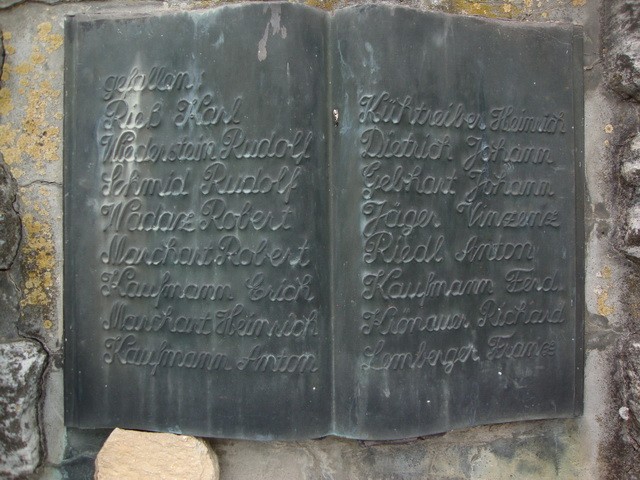 gefallen:
Rieß Karl
Wiederstein Rudolf
Schmid Rudolf
Wadarz Robert
Marchart Robert
Kaufmann Erich
Marchart Heinrich
Kaufmann Anton
Kühtreiber Heinrich
Dietrich Johann
Gebhart Johann
Jäger Vinzenz
Riedl Anton
Kaufmann Ferd.
Krönauer Richard
Lemberger Franz